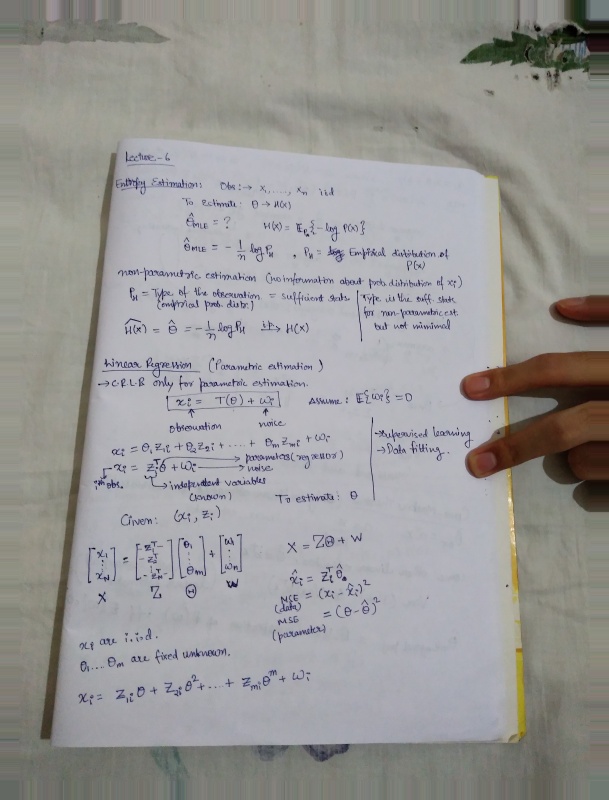 Lecture-6
Entropy Estimation: Obs: → X₁, ...., Xₙ iid
To estimate: θ → H(X)
θ̂MLE = ? H(X) = 𝔼{-log P(X)}
θ̂MLE = - 1/n log P_H , P_H = Empirical distribution of P(X)
non-parametric estimation (no information about prob. distribution of xᵢ)
P_H = Type of the observation = sufficient stats
(empirical prob. distr.)
Type is the suff. stats
for non-parametric est.
but not minimal
Ĥ(X) = θ̂ = - 1/n log P_H i.p.→ H(X)
Linear Regression (Parametric estimation)
→ C.R.L.B only for parametric estimation.
xᵢ = T(θ) + ωᵢ Assume: 𝔼{ωᵢ} = 0
observation noise
xᵢ = θ₁ z₁ᵢ + θ₂ z₂ᵢ + .... + θm zmᵢ + ωᵢ
→ supervised learning
→ Data fitting.
xᵢ = zᵢᵀθ + ωᵢ → parameters (regressor)
→ noise
iᵗʰ obs. → independent variables
(known) To estimate: θ
Given: (xᵢ, zᵢ)
[x₁ ⋮ x_N] = [-z₁ᵀ- -z₂ᵀ- ⋮ -z_Nᵀ-] [θ₁ ⋮ θm] + [ω₁ ⋮ ωn] X = ZΘ + W
X Z Θ W
x̂ᵢ = zᵢᵀθ̂
MSE (data) = (xᵢ - x̂ᵢ)²
MSE (parameter) = (θ - θ̂)²
xᵢ are i.i.d.
θ₁ .... θm are fixed unknown.
xᵢ = Z₁ᵢ θ + Z₂ᵢ θ² + ... + Zmᵢ θᵐ + ωᵢ